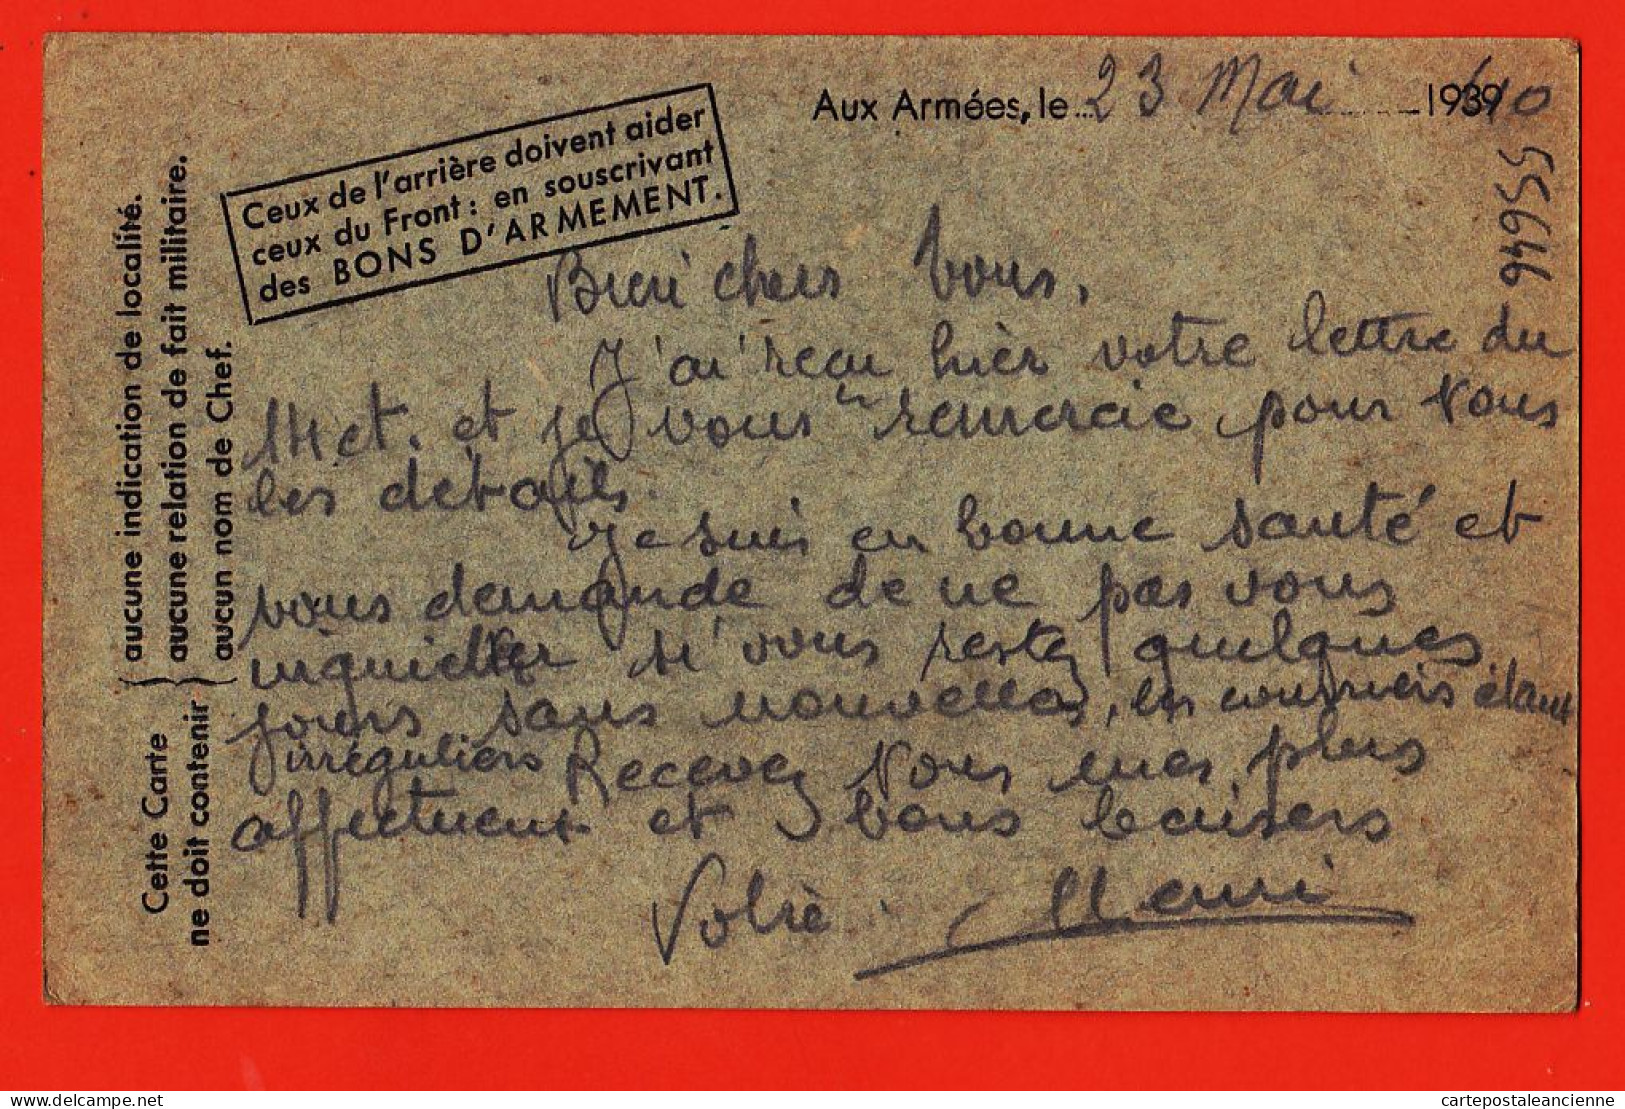 Aux Armées, le 23 Mai 193940
Ceux de l'arrière doivent aider
ceux du Front : en souscrivant
des BONS D'ARMEMENT.
Cette Carte
ne doit contenir
aucune indication de localité.
aucune relation de fait militaire.
aucun nom de Chef.
Bien chers Vous,
J'ai reçu hier votre lettre du
14 ct. et je vous en remercie pour tous
les détails.
Je suis en bonne santé et
vous demande de ne pas vous
inquietter si vous restez quelques
jours sans nouvelles, les courriers étant
irréguliers Recevez tous mes plus
affectueux et bons baisers
Votre Henri
delcampe.net
cartepostaleancienne